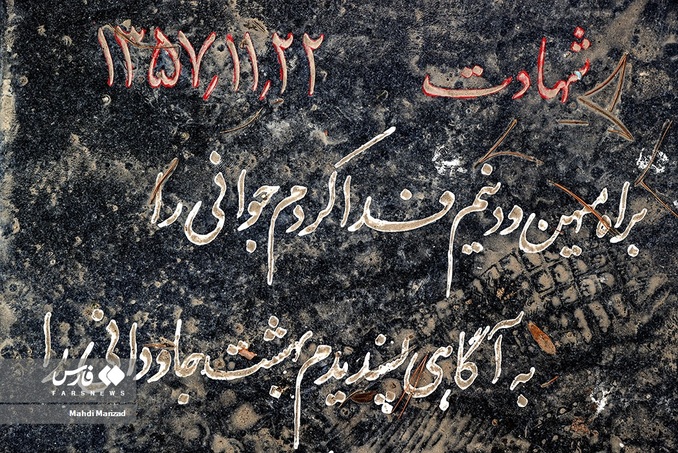 شهادت ۱۳۵۷٫۱۱٫۲۲
براه میهن و دینم فدا کردم جوانی را
به آگاهی پسندیدم بهشت جاودانی را
فارس
FARSNEWS
Mahdi Marizad